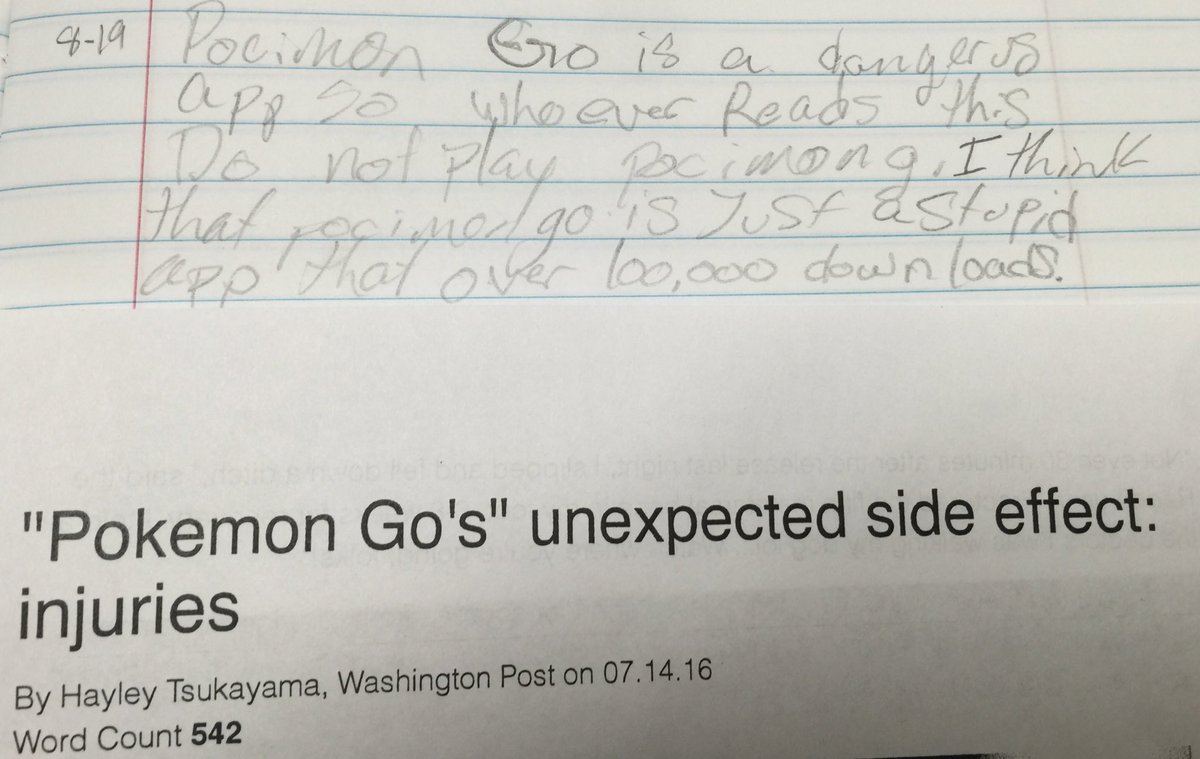 8-19 Pocimon Go is a dangerus
app so whoever Reads this
Do not play pocimon g. I think
that pocimon go is Just a stupid
app that over 100,000 downloads.
"Pokemon Go's" unexpected side effect:
injuries
By Hayley Tsukayama, Washington Post on 07.14.16
Word Count 542